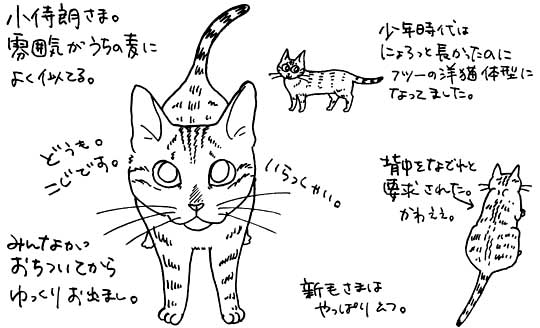 小侍朗さま。
雰囲気がうちの麦に
よく似てる。
少年時代は
にょろっと長かったのに
フツーの洋猫体型に
なってました。
どうも。
こじです。
いらっしゃい。
背中をなでれと
要求された。
かわええ。
みんながかつ
おちついてから
ゆっくりお出まし。
新毛さまは
やっぱりムツ。